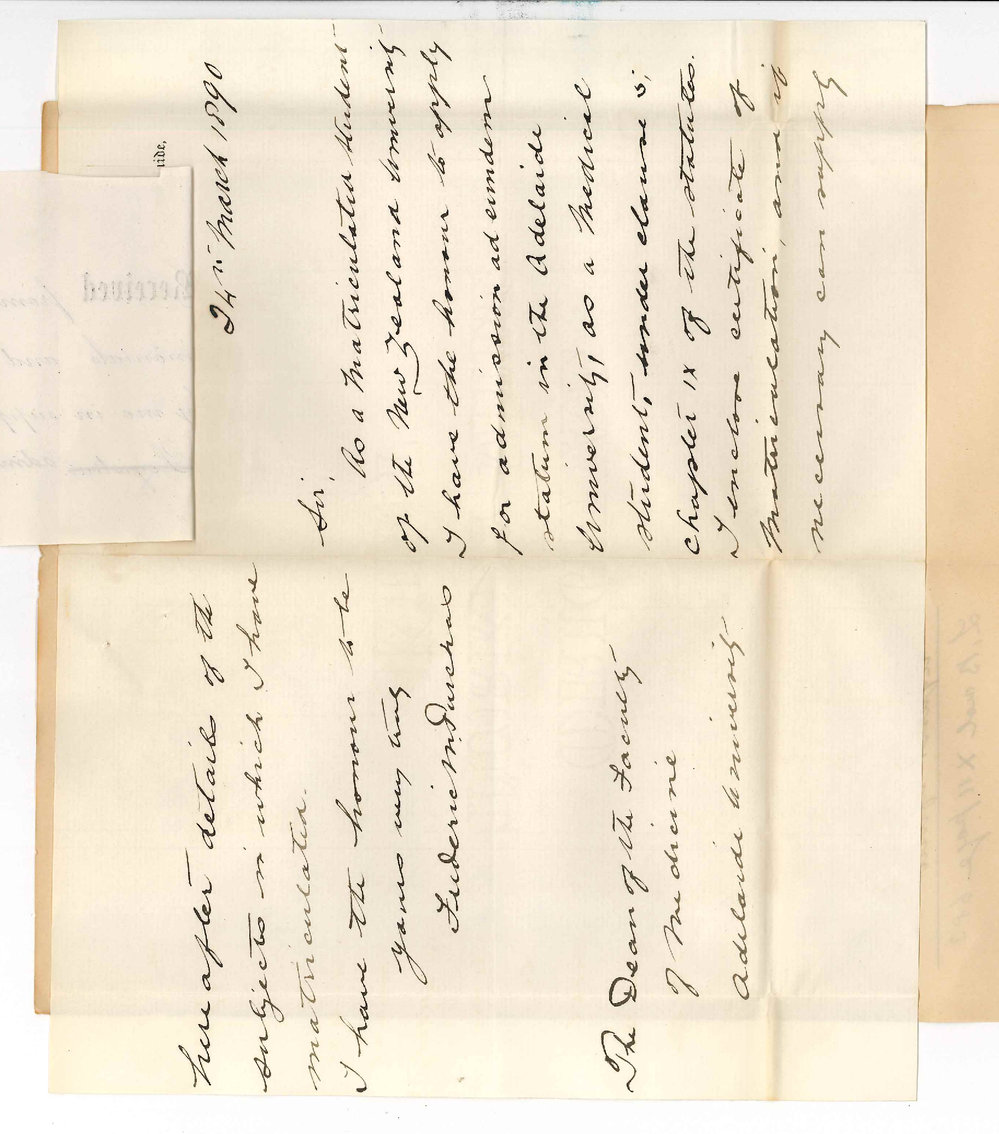 24th March 1890
Sir,
As a Matriculated student
of the New Zealand University
I have the honour to apply
for admission ad eundem
statum in the Adelaide
University, as a Medical
student, under clause 5,
Chapter IX of the statutes.
I enclose certificate of
Matriculation, and if
necessary can supply
hereafter details of the
subjects in which I have
matriculated.
I have the honour to be
yours very truly
Frederic W.
The Dean of the Faculty
of Medicine
Adelaide University
Received
from
and
of me in
aide,